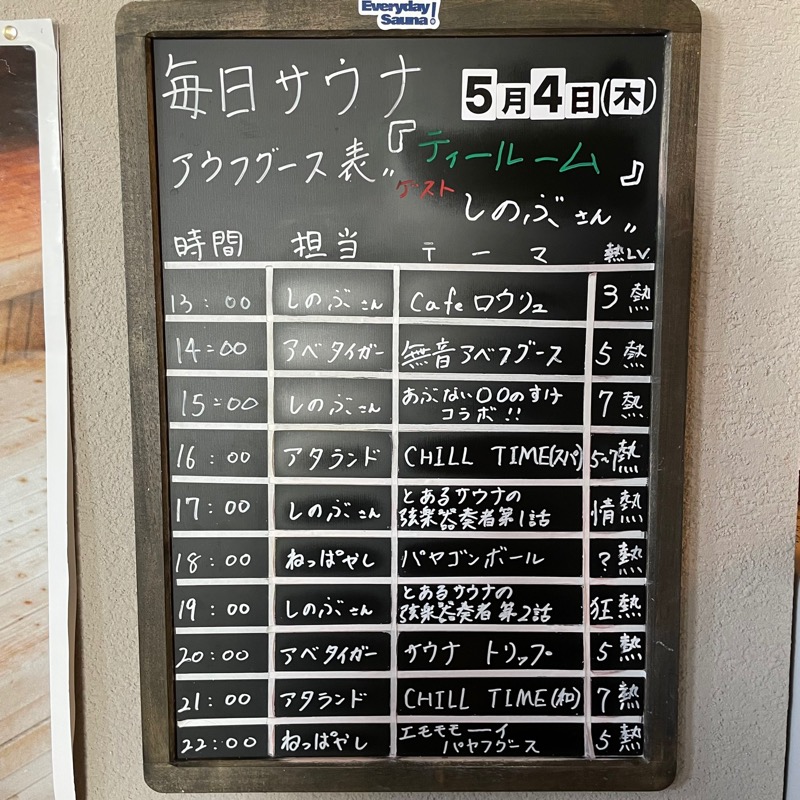 Everyday
Sauna!
毎日サウナ 5月4日(木)
アウフグース表 『ティールーム』
ゲスト しのぶさん
時間 担当 テーマ 熱LV.
13:00 しのぶさん Cafeロウリュ 3熱
14:00 アベタイガー 無音アベフグース 5熱
15:00 しのぶさん あぶない〇〇のすけ 7熱
コラボ!!
16:00 アタランド CHILL TIME(スパ) 5~7熱
17:00 しのぶさん とあるサウナの 情熱
弦楽器奏者第1話
18:00 ねっぱやし パヤゴンボール ?熱
19:00 しのぶさん とあるサウナの 狂熱
弦楽器奏者第2話
20:00 アベタイガー サウナ トリップ 5熱
21:00 アタランド CHILL TIME(和) 7熱
22:00 ねっぱやし エモモモーイ 5熱
パヤフグース